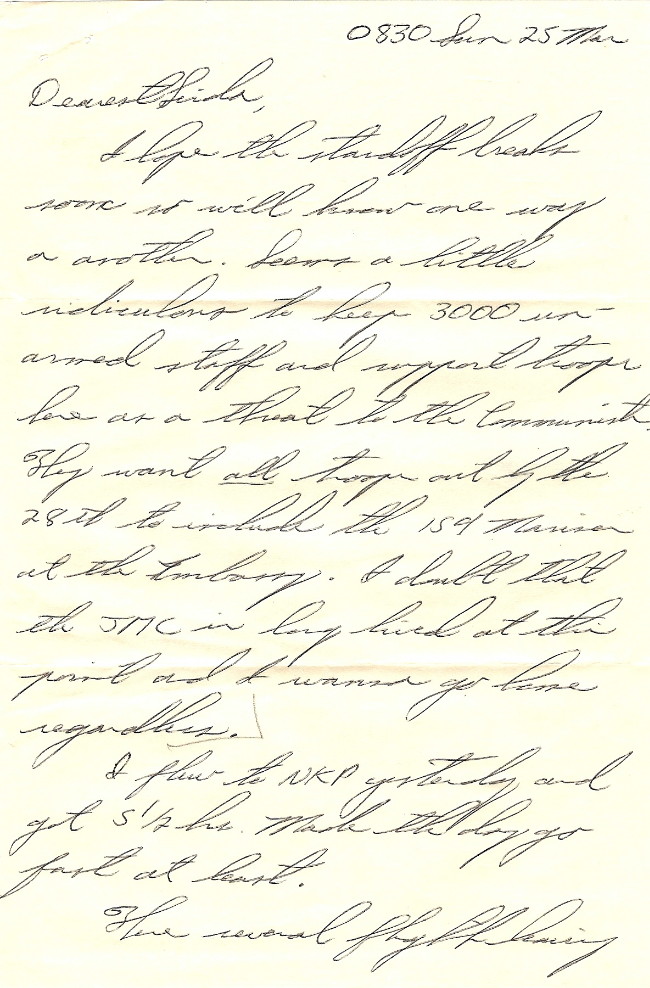 0830 Sun 25 Mar
Dearest Linda,
I hope the standoff breaks
soon so we'll know one way
or another. Seems a little
ridiculous to keep 3000 un-
armed staff and support troops
here as a threat to the Communists.
They want all troops out by the
28th to include the 159 Marines
at the Embassy. I doubt that
the JMC is long lived at this
point and I wanna go home
regardless.
I flew to NKP yesterday and
got 5 1/2 hrs. Made the day go
fast at least.
There several leaving